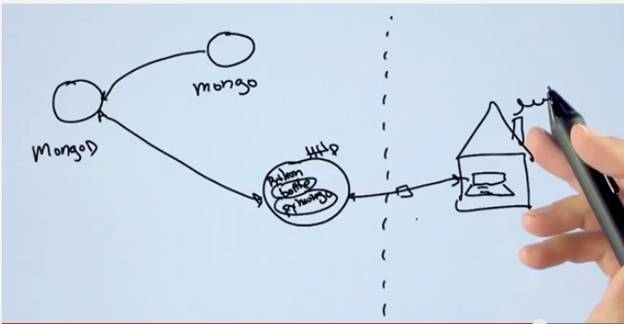 mongo
MongoD
Http
Python
bottle
pymongo